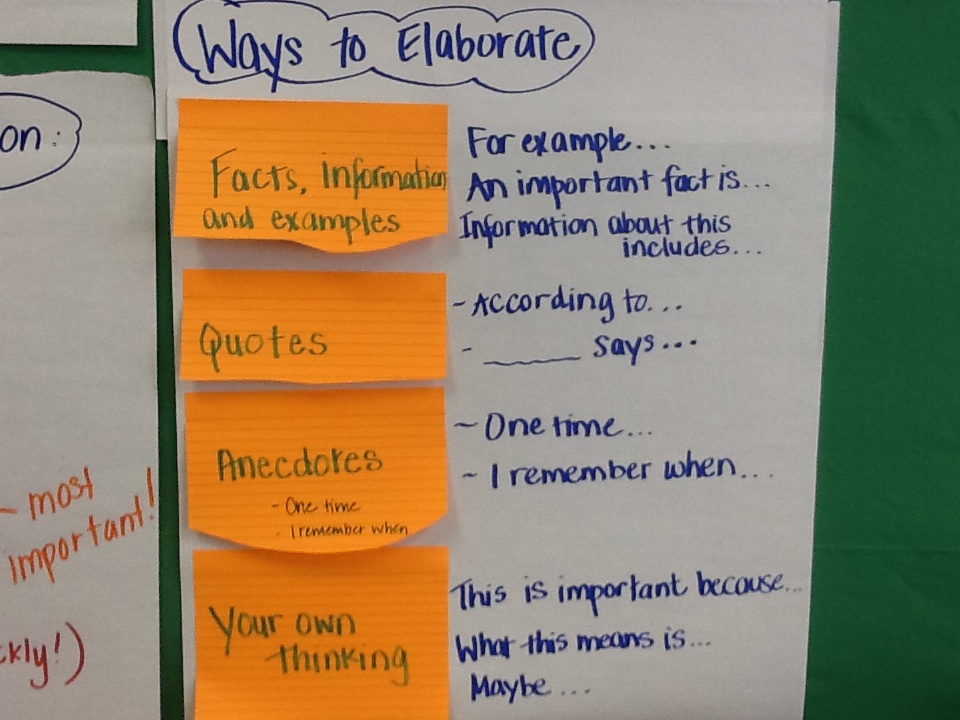 Ways to Elaborate
Facts, information
and examples
For example...
An important fact is...
Information about this
includes...
Quotes
- According to...
- _____ says...
Anecdotes
- One time
- I remember when
~ One time...
~ I remember when...
Your own
thinking
This is important because...
What this means is...
Maybe...
on:
- most
important!
ckly!)